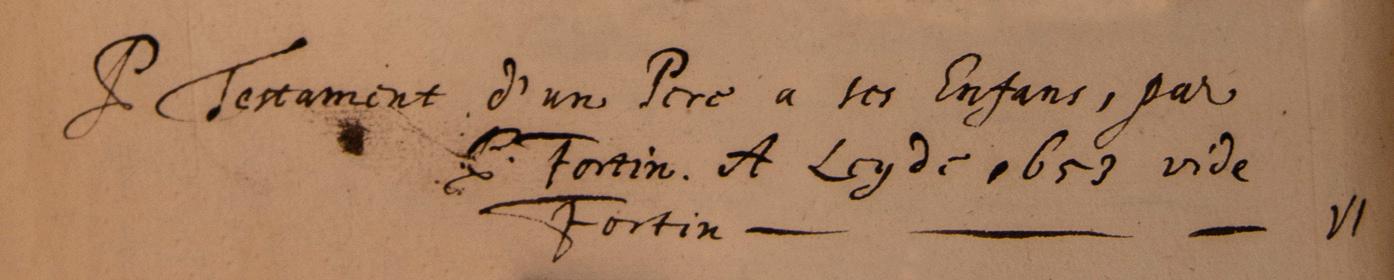 P Testament d'un Pere a ses Enfans, par
P. Fortin. A Leyde 1653 vide
Fortin — — — VI